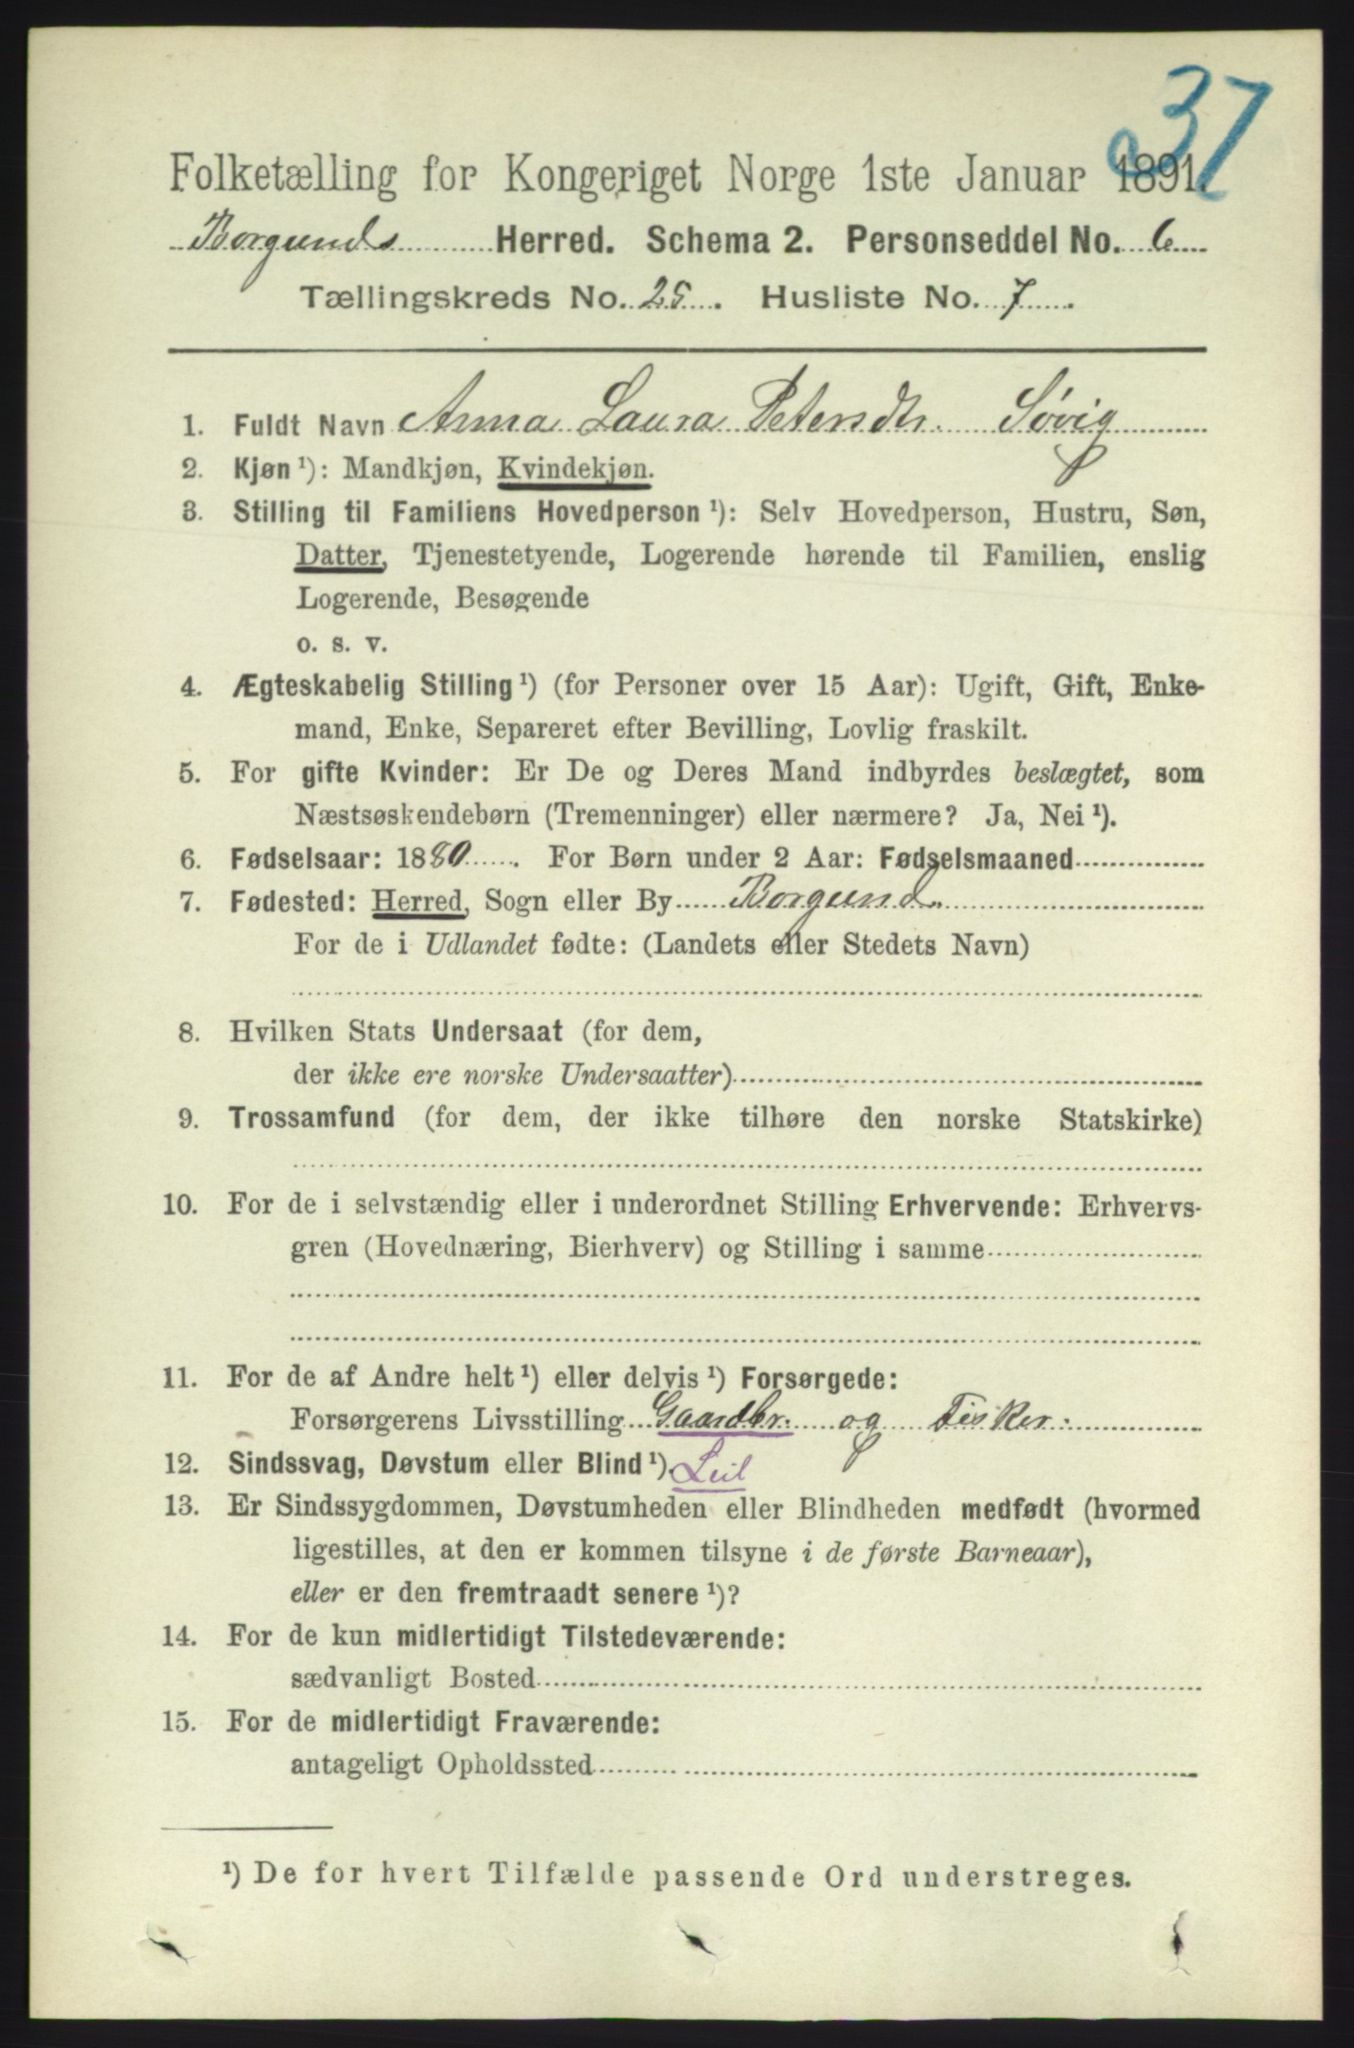 37
Folketælling for Kongeriget Norge 1ste Januar 1891.
Borgunds Herred. Schema 2. Personseddel No. 6
Tællingskreds No. 25. Husliste No. 7.
1. Fuldt Navn Anna Laura Petersdtr. Søvig
2. Kjøn ¹): Mandkjøn, Kvindekjøn.
3. Stilling til Familiens Hovedperson ¹): Selv Hovedperson, Hustru, Søn,
Datter, Tjenestetyende, Logerende hørende til Familien, enslig
Logerende, Besøgende
o. s. v.
4. Ægteskabelig Stilling ¹) (for Personer over 15 Aar): Ugift, Gift, Enke-
mand, Enke, Separeret efter Bevilling, Lovlig fraskilt.
5. For gifte Kvinder: Er De og Deres Mand indbyrdes beslægtet, som
Næstsøskendebørn (Tremenninger) eller nærmere? Ja, Nei ¹).
6. Fødselsaar: 1880. For Børn under 2 Aar: Fødselsmaaned
7. Fødested: Herred, Sogn eller By Borgund.
For de i Udlandet fødte: (Landets eller Stedets Navn)
8. Hvilken Stats Undersaat (for dem,
der ikke ere norske Undersaatter)
9. Trossamfund (for dem, der ikke tilhøre den norske Statskirke)
10. For de i selvstændig eller i underordnet Stilling Erhvervende: Erhvervs-
gren (Hovednæring, Bierhverv) og Stilling i samme
11. For de af Andre helt ¹) eller delvis ¹) Forsørgede:
Forsørgerens Livsstilling Gaardbr. og Fisker.
12. Sindssvag, Døvstum eller Blind ¹). Leil
13. Er Sindssygdommen, Døvstumheden eller Blindheden medfødt (hvormed
ligestilles, at den er kommen tilsyne i de første Barneaar),
eller er den fremtraadt senere ¹)?
14. For de kun midlertidigt Tilstedeværende:
sædvanligt Bosted
15. For de midlertidigt Fraværende:
antageligt Opholdssted
¹) De for hvert Tilfælde passende Ord understreges.